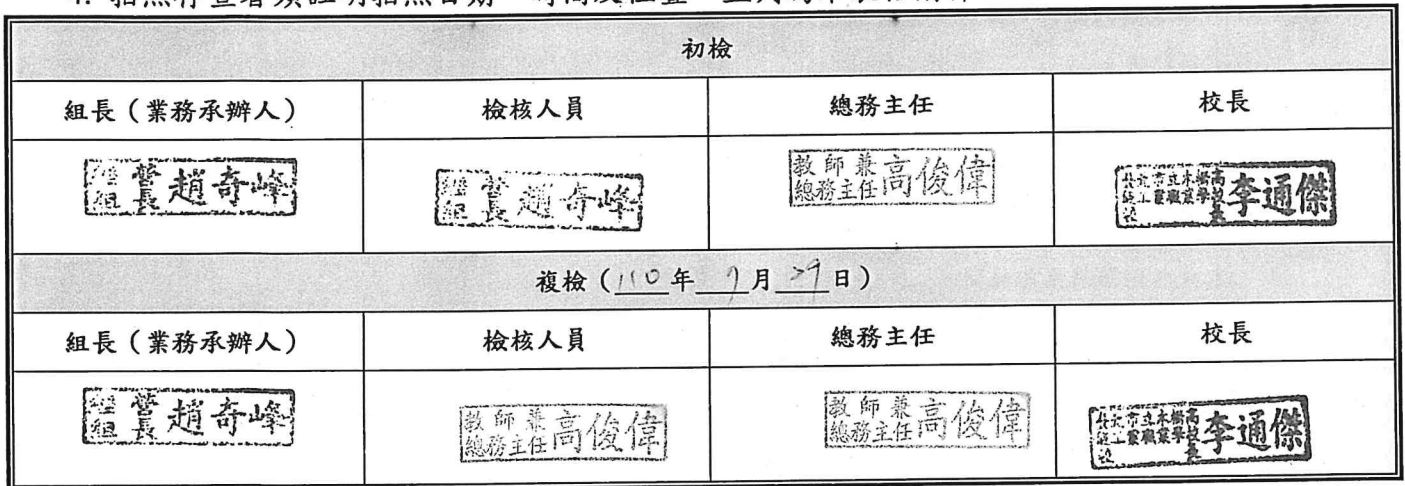 初檢
組長（業務承辦人） 檢核人員 總務主任 校長
經營組長 趙奇峰 經營組長 趙奇峰 教師兼總務主任 高俊偉 李通傑
複檢（110年 9月 29日）
組長（業務承辦人） 檢核人員 總務主任 校長
經營組長 趙奇峰 教師兼總務主任 高俊偉 教師兼總務主任 高俊偉 李通傑